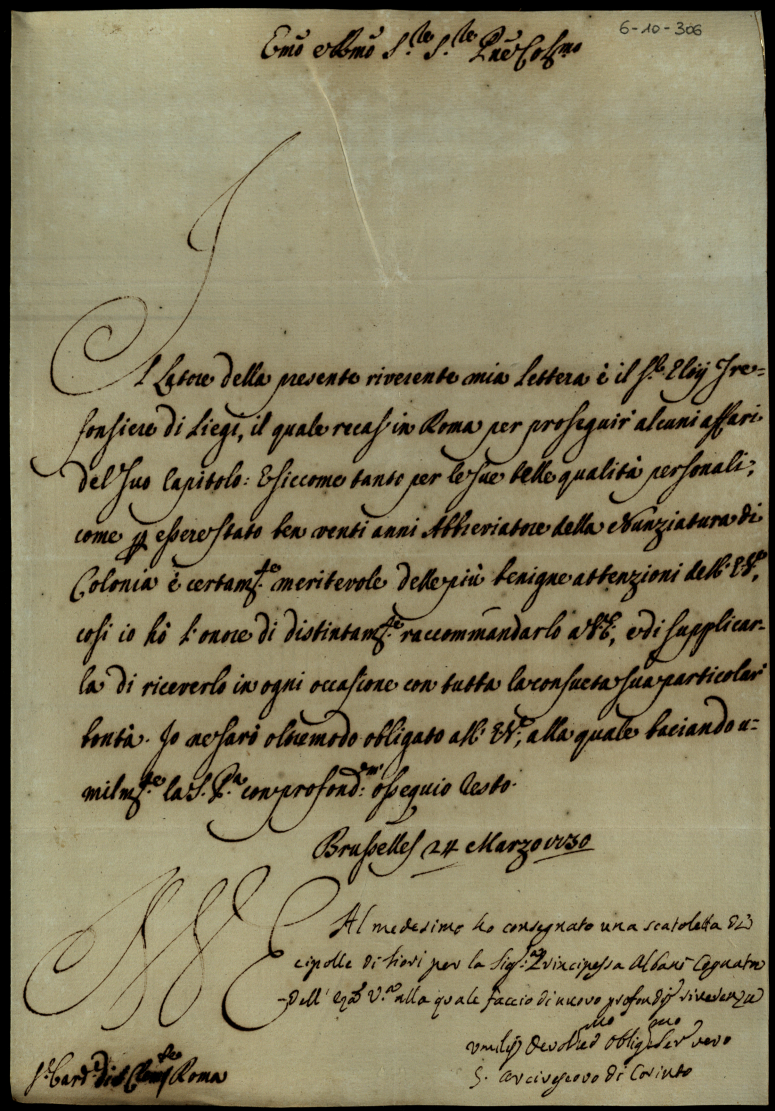 6-10-306
Emo e Rmo S.re S.re Pne Colmo
Il Latore della presente riverente mia Lettera è il Sr. Eloy Tre-
fonsiere di Liegi, il quale recasi in Roma per proseguir' alcuni affari
del suo Capitolo: E siccome tanto per le sue belle qualità personali,
come p essere stato ben venti anni Abbreviatore della Nunziatura di
Colonia è certam.te meritevole delle più benigne attenzioni dell' E.V.,
così io hò l'onore di distintam.te raccommandarlo a V.E., e di supplicar-
la di riceverlo in ogni occasione con tutta la consueta sua particolar'
bontà. Io ne sarò oltremodo obligato all' E.V., alla quale baciando u-
milm.te la S. P.a con profond.mo ossequio resto.
Brusselles 24 Marzo 1730
Al medesimo ho consegnato una scatoletta di
cipolle di fiori per la Sig.ra Principessa Albani Cognata
dell' V.ra alla quale faccio di nuovo profond.ma riverenza
V E
Devot.mo ed oblig.mo Ser.r vero
G. arcivescovo di Corinto
S.r Card.e Roma